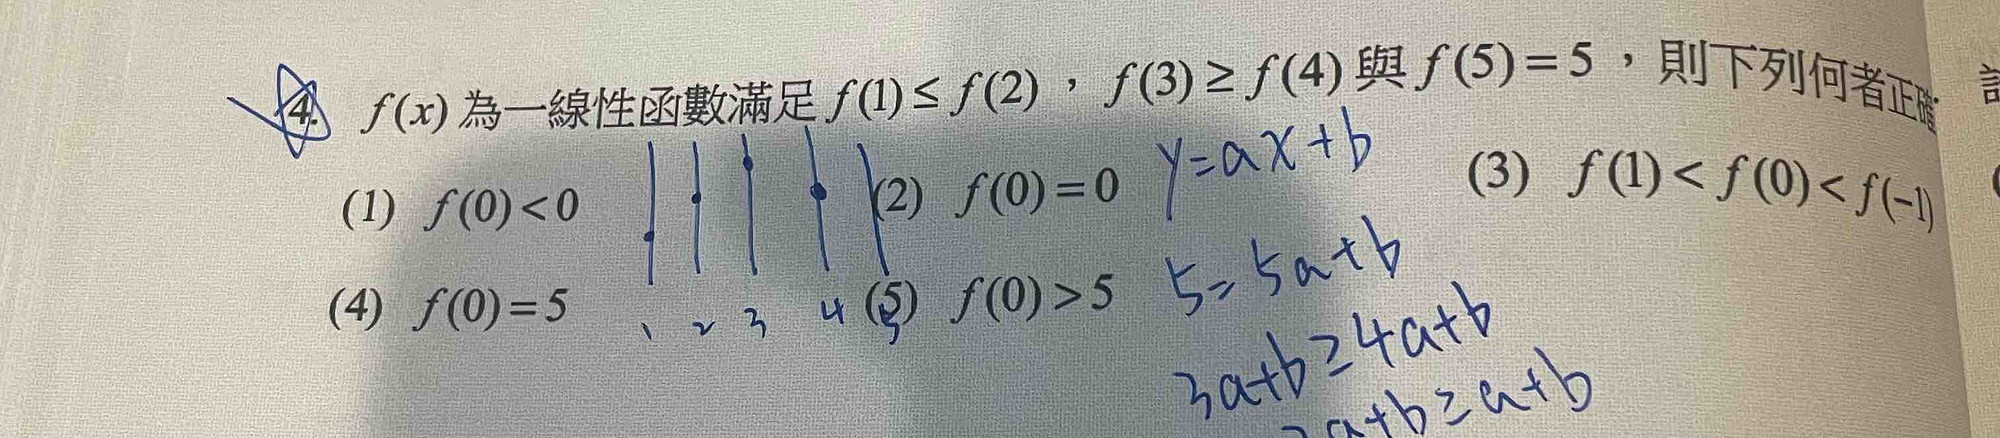 4. f(x) 為一線性函數滿足 f(1) ≤ f(2)，f(3) ≥ f(4) 與 f(5) = 5，則下列何者正確
(1) f(0) < 0 (2) f(0) = 0 (3) f(1) < f(0) < f(-1)
(4) f(0) = 5 (5) f(0) > 5
1 2 3 4 5
y = ax + b
5 = 5a + b
3a+b ≥ 4a+b
a+b ≥ a+b